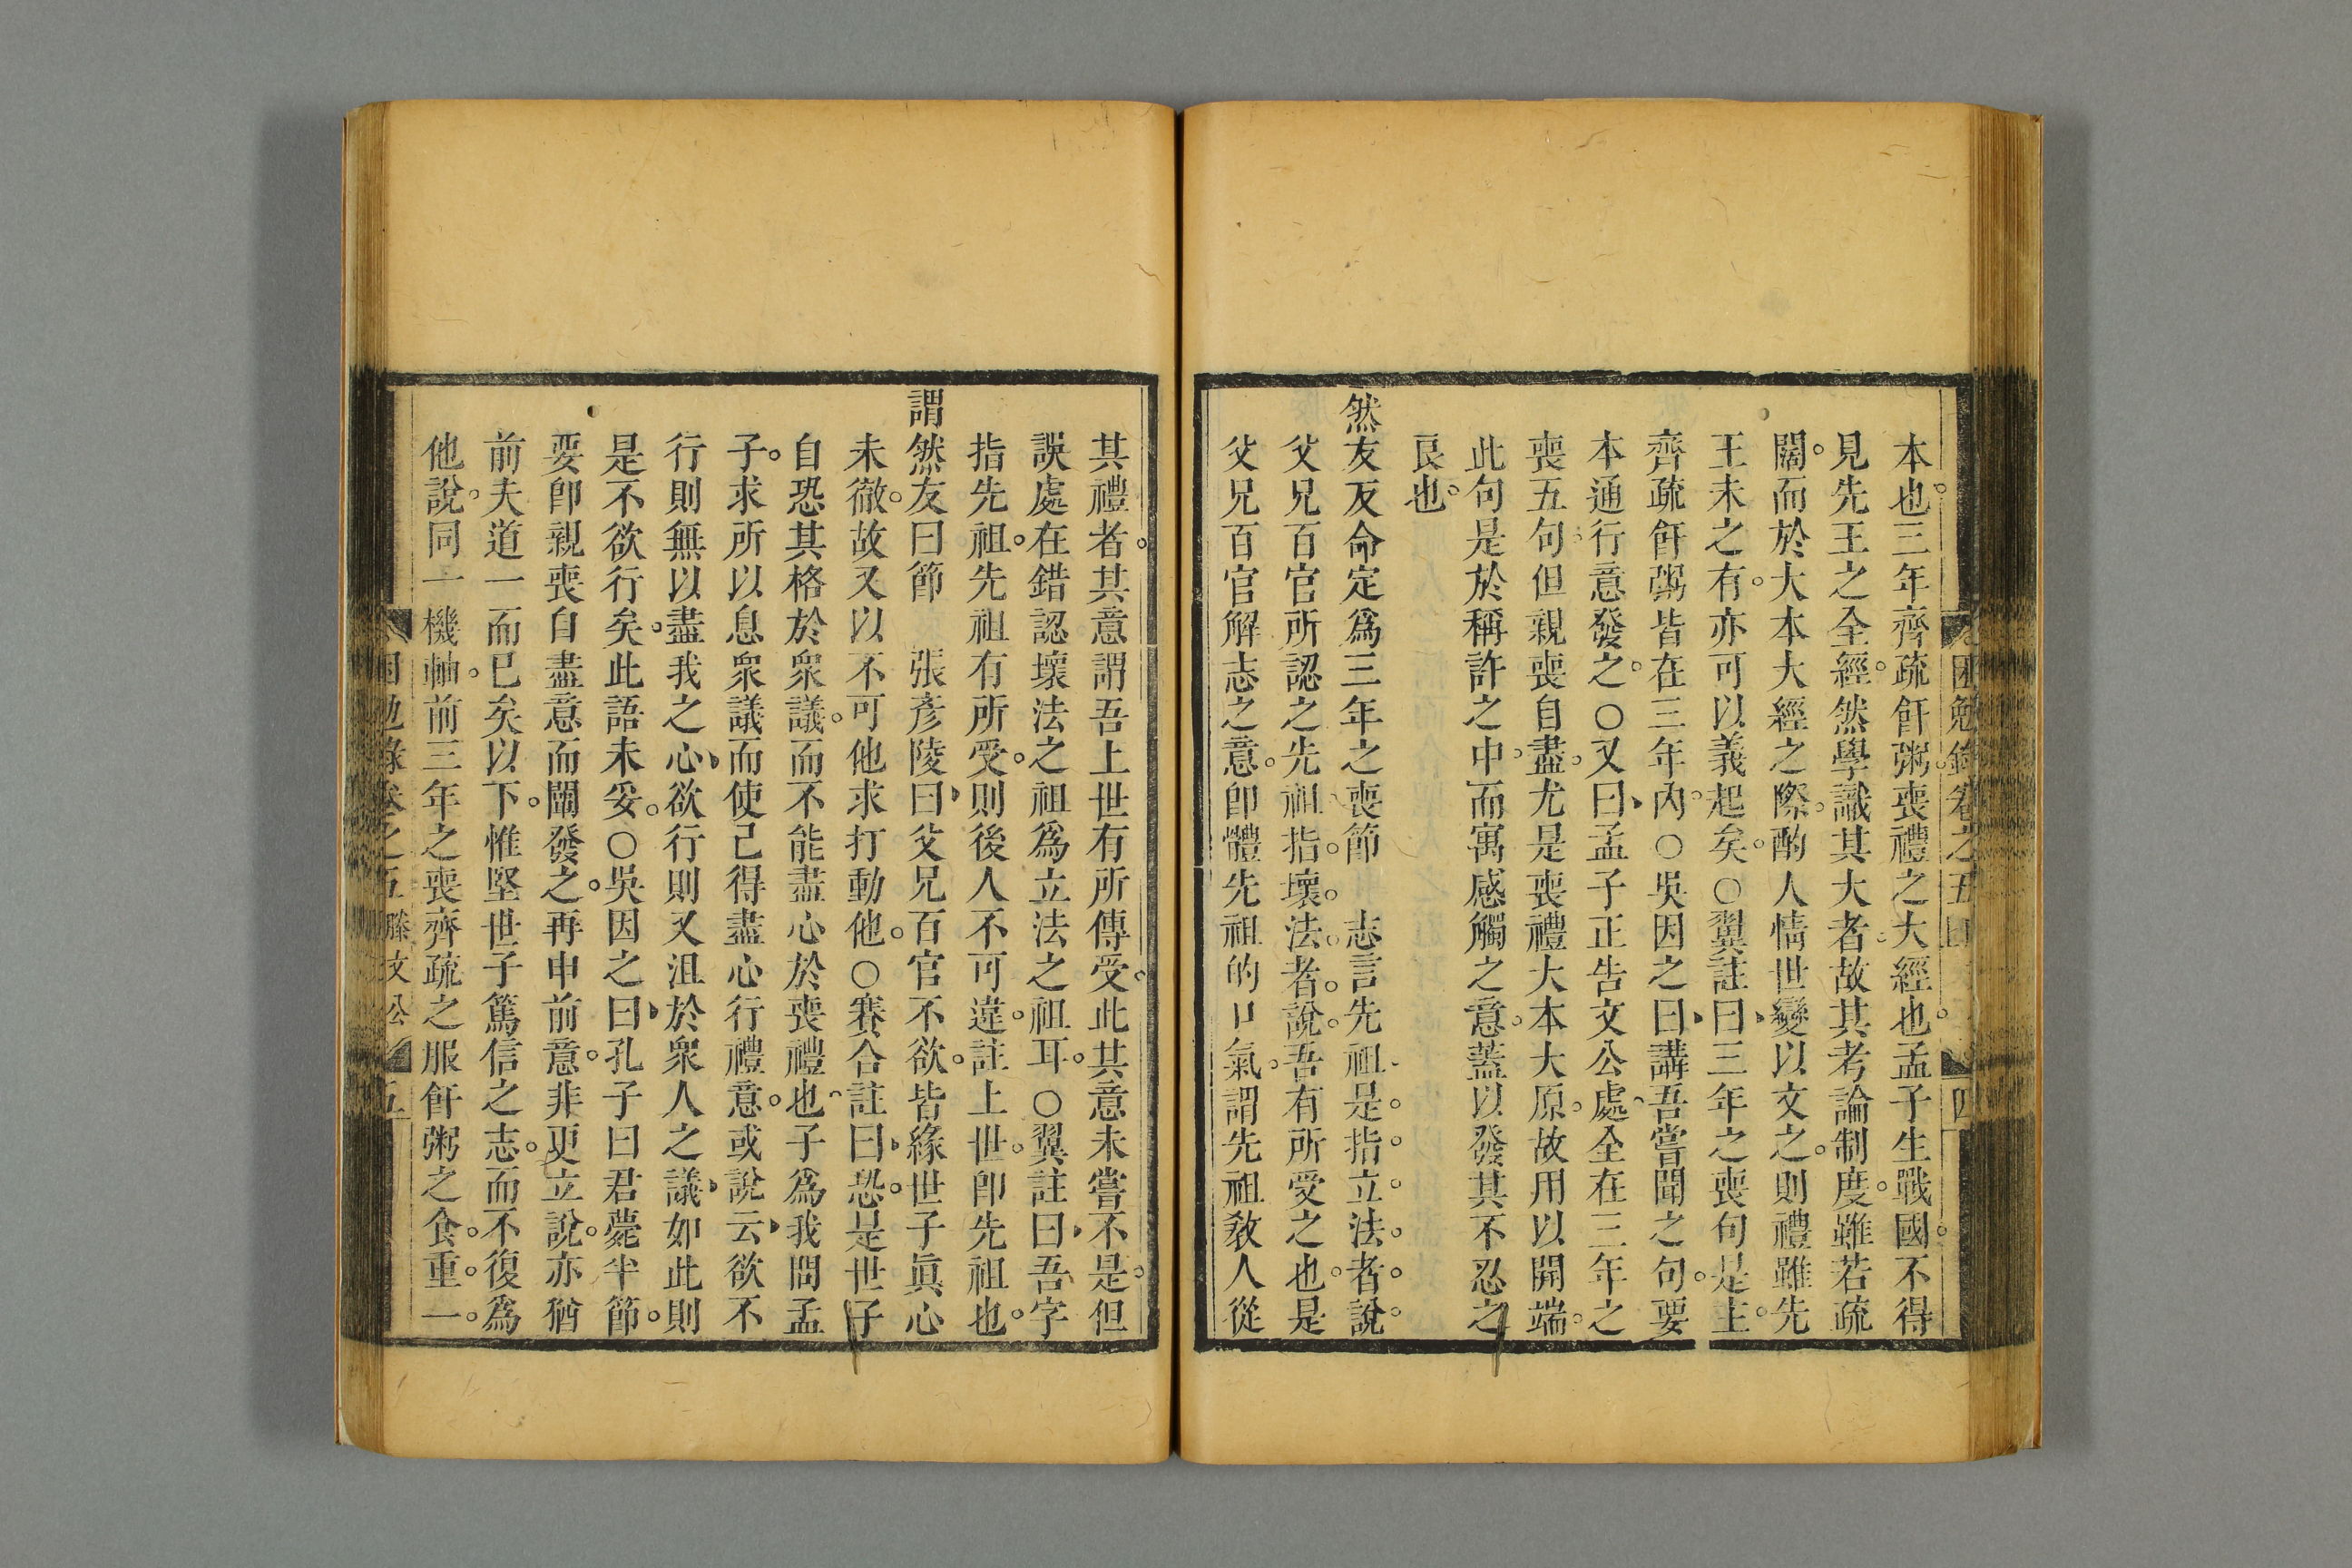 本也三年齊疏飦粥喪禮之大經也孟子生戰國不得
見先王之全經然學識其大者故其考論制度雖若疏
闊而於大本大經之際酌人情世變以文之則禮雖先
王未之有亦可以義起矣○翼註曰三年之喪句是主
齊疏飦粥皆在三年內○吳因之曰講吾嘗聞之句要
本通行意發之○又曰孟子正告文公處全在三年之
喪五句但親喪自盡尤是喪禮大本大原故用以開端
此句是於稱許之中而寓感觸之意蓋以發其不忍之
良也
然友反命定爲三年之喪節 志言先祖是指立法者說
父兄百官所認之先祖指壞法者說吾有所受之也是
父兄百官解志之意卽體先祖的口氣謂先祖敎人從
困勉錄卷之五 四
其禮者其意謂吾上世有所傳受此其意未嘗不是但
誤處在錯認壞法之祖爲立法之祖耳○翼註曰吾字
指先祖先祖有所受則後人不可違註上世卽先祖也
謂然友曰節 張彥陵曰父兄百官不欲皆緣世子眞心
未徹故又以不可他求打動他○賽合註曰恐是世子
自恐其格於衆議而不能盡心於喪禮也子爲我問孟
子求所以息衆議而使己得盡心行禮意或說云欲不
行則無以盡我之心欲行則又沮於衆人之議如此則
是不欲行矣此語未妥○吳因之曰孔子曰君薨半節
要卽親喪自盡意而闡發之再申前意非更立說亦猶
前夫道一而已矣以下惟堅世子篤信之志而不復爲
他說同一機軸前三年之喪齊疏之服飦粥之食重一
困勉錄卷之五 滕文公 五